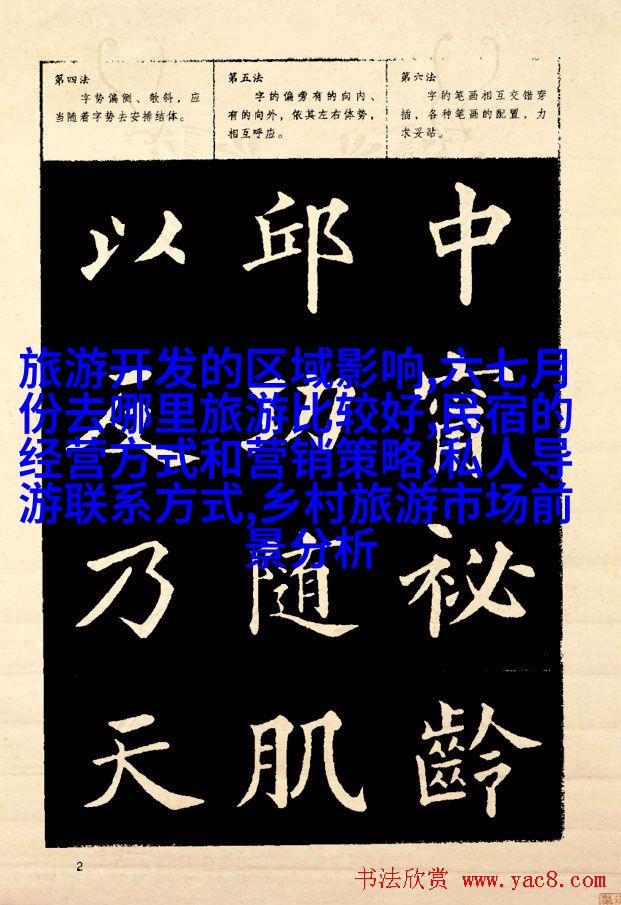 第四法
字势偏侧、欹斜，应
当随着字势去安排结体。
第五法
字的偏旁有的向内、
有的向外，依其左右体势，
相互呼应。
第六法
字的笔画相互交错穿
插，各种笔画的配置，力
求妥
以 邱 中
旅游开发的区域影响,六七月
份去哪里旅游比较好,民宿的
经营方式和营销策略,私人导
游联系方式,乡村旅游市场前
景分析
乃 随 祕
天 肌 齡
2
书法欣赏 www.yac8.com